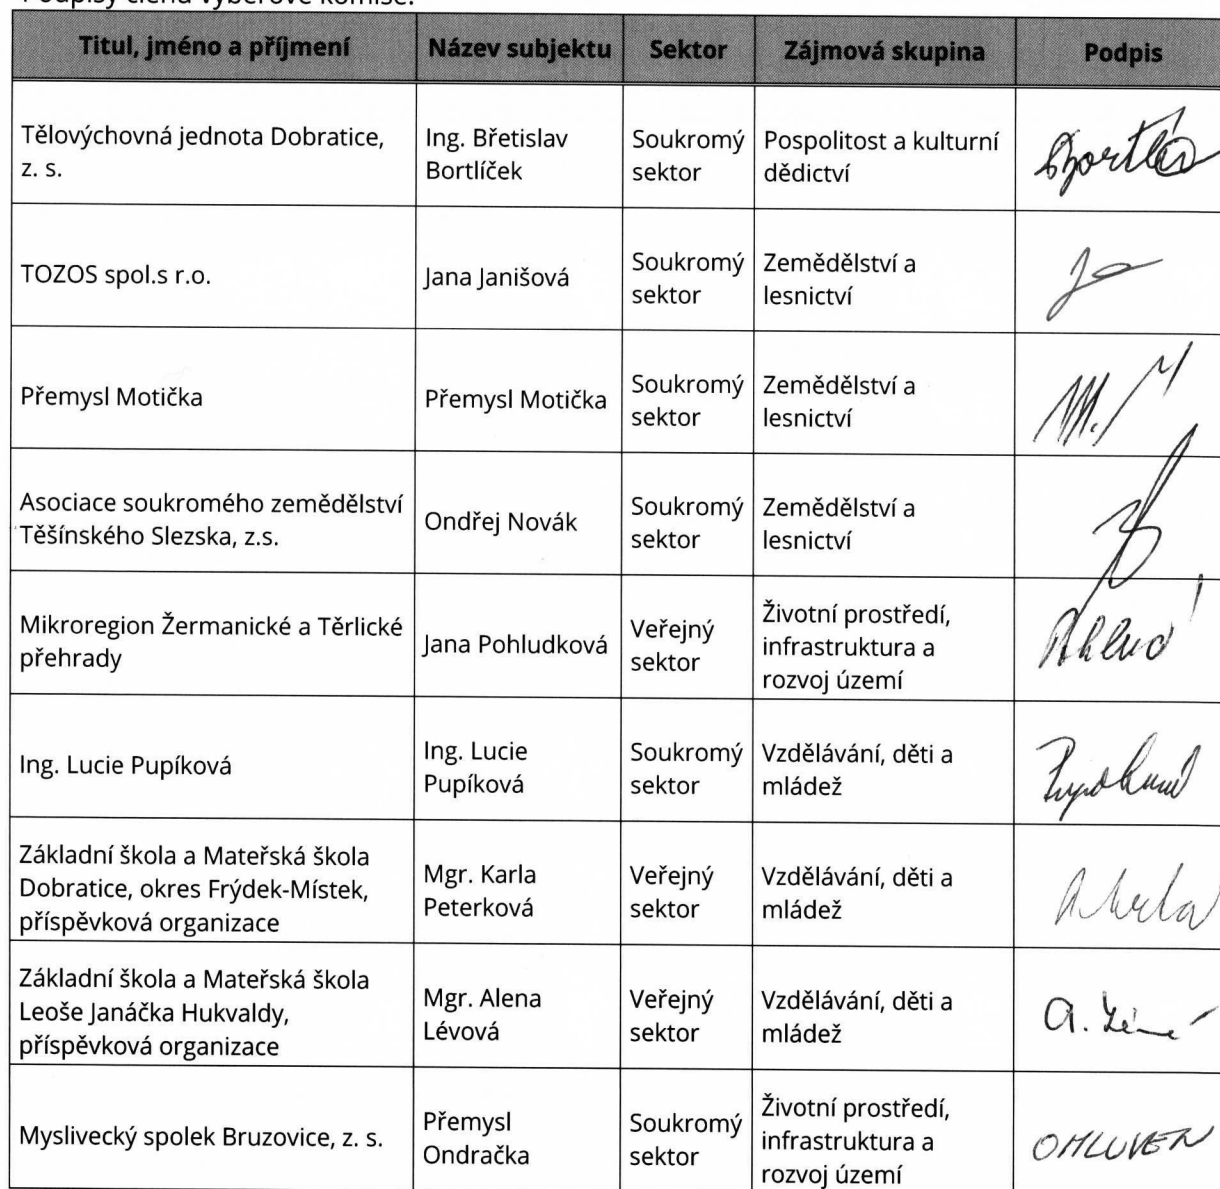 Podpisy členů výběrové komise:
Titul, jméno a příjmení Název subjektu Sektor Zájmová skupina Podpis
Tělovýchovná jednota Dobratice,
z. s.
Ing. Břetislav
Bortlíček
Soukromý
sektor
Pospolitost a kulturní
dědictví
TOZOS spol.s r.o.
Jana Janišová
Soukromý
sektor
Zemědělství a
lesnictví
Přemysl Motička
Přemysl Motička
Soukromý
sektor
Zemědělství a
lesnictví
Asociace soukromého zemědělství
Těšínského Slezska, z.s.
Ondřej Novák
Soukromý
sektor
Zemědělství a
lesnictví
Mikroregion Žermanické a Těrlické
přehrady
Jana Pohludková
Veřejný
sektor
Životní prostředí,
infrastruktura a
rozvoj území
Ing. Lucie Pupíková
Ing. Lucie
Pupíková
Soukromý
sektor
Vzdělávání, děti a
mládež
Základní škola a Mateřská škola
Dobratice, okres Frýdek-Místek,
příspěvková organizace
Mgr. Karla
Peterková
Veřejný
sektor
Vzdělávání, děti a
mládež
Základní škola a Mateřská škola
Leoše Janáčka Hukvaldy,
příspěvková organizace
Mgr. Alena
Lévová
Veřejný
sektor
Vzdělávání, děti a
mládež
Myslivecký spolek Bruzovice, z. s.
Přemysl
Ondračka
Soukromý
sektor
Životní prostředí,
infrastruktura a
rozvoj území
OMLUVEN